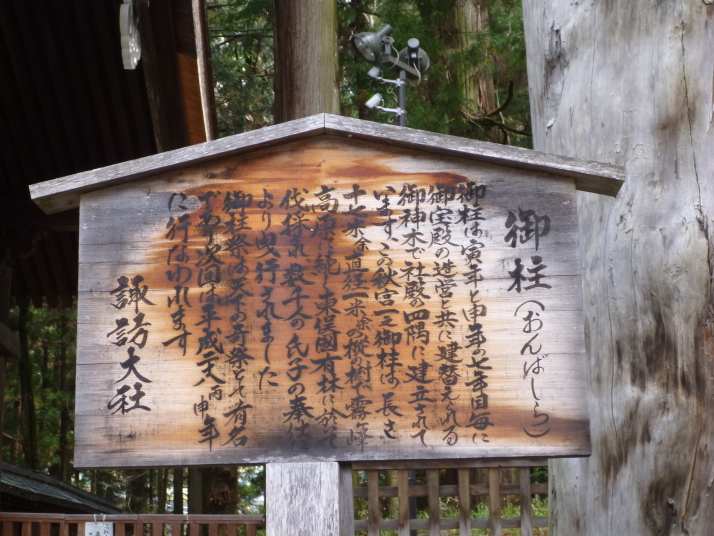 御柱(おんばしら)
御柱は寅年と申年の七年目毎に
御宝殿の造営と共に建替えられる
御神木で社殿の四隅に建立されて
います、この秋宮一之御柱は、長さ
十七米余、直径一米余の樅の樹、霧ヶ峰
高原に続く東俣国有林に於て
伐採され数千人の氏子の奉仕
より曳行されました
御柱祭は天下の奇祭として有名
であり次回は平成二十八丙申年
に行なわれます
諏訪大社